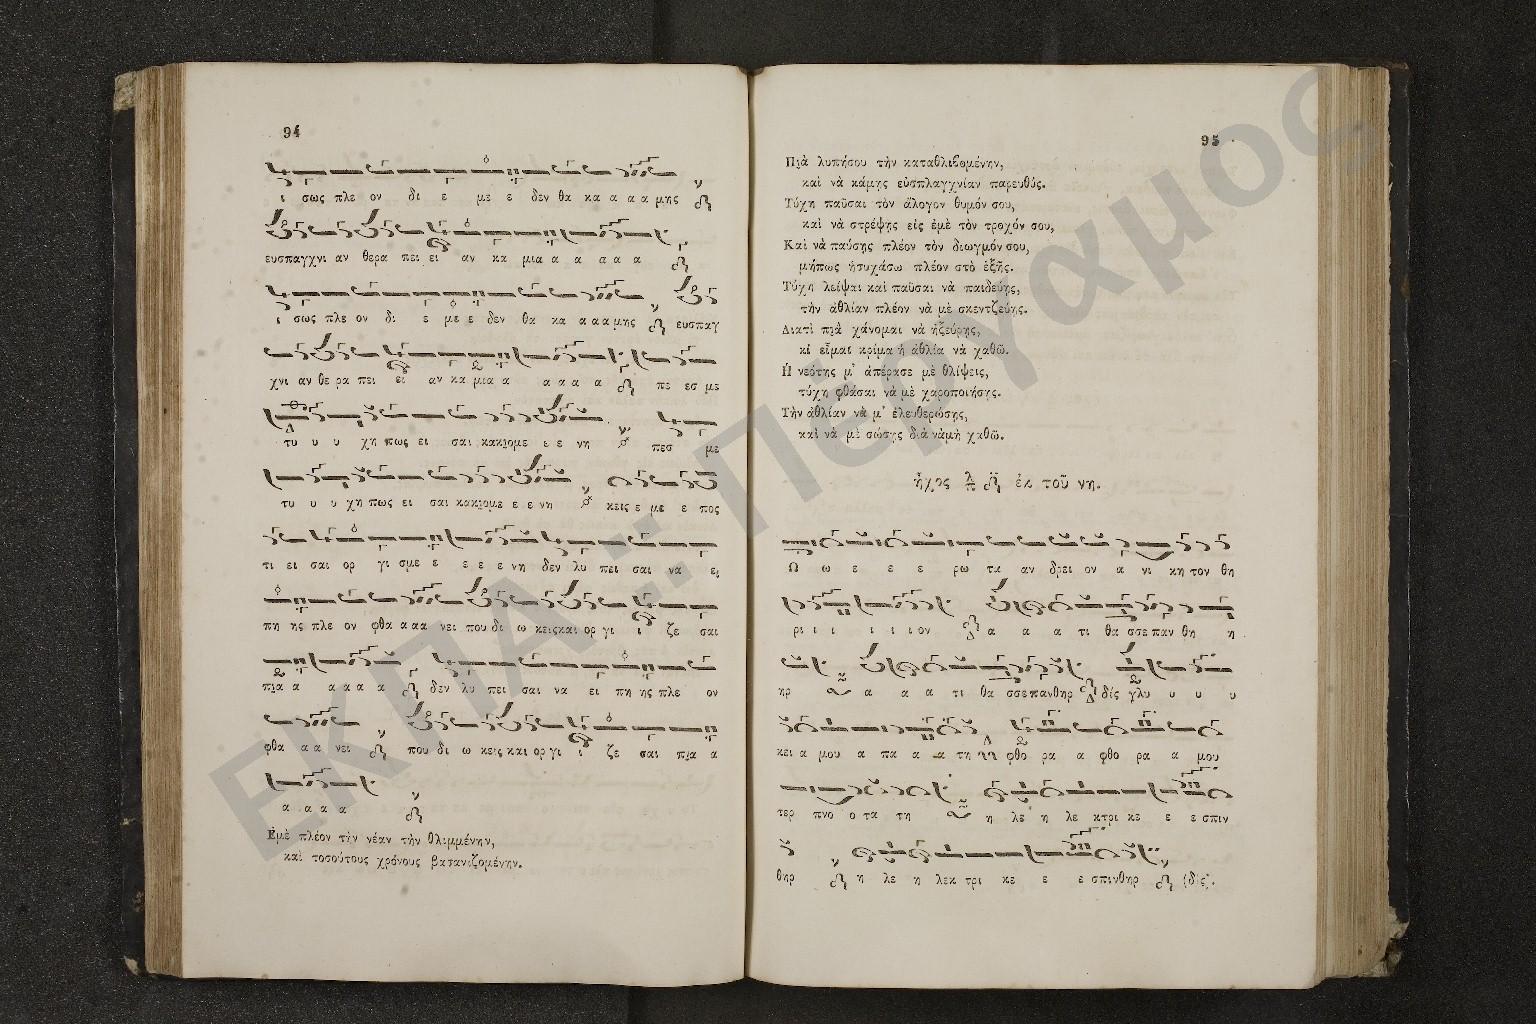 94
ι σως πλε ον δι ε με ε δεν θα κα α α α μης
ευσπαγχνι αν θερα πει ει αν κα μια α α α α α
ι σως πλε ον δι ε με ε δεν θα κα α α α μης ευσπαγ
χνι αν θε ρα πει ει αν κα μια α α α α α πε εσ με
τυ υ υ χη πως ει σαι κακιομε ε ε νη πεσ με
τυ υ υ χη πως ει σαι κακιομε ε ε νη κεις ε με ε πος
τι ει σαι ορ γι σμε ε ε ε ε νη δεν λυ πει σαι να ει
πη ης πλε ον φθα α αα νει που δι ω κειςκαι ορ γι ι ζε σαι
πια α α α α α δεν λυ πει σαι να ει πη ης πλε ον
φθα α α νει που δι ω κεις και ορ γι ι ζε σαι πια α
α α α α
Εμὲ πλέον τὴν νέαν τὴν θλιμμένην,
καὶ τοσούτους χρόνους βασανιζομένην.
95
Πιὰ λυπήσου τὴν καταθλιβομένην,
καὶ νὰ κάμῃς εὐσπλαγχνίαν παρευθύς.
Τύχη παῦσαι τὸν ἄλογον θυμόν σου,
καὶ νὰ στρέψῃς εἰς ἐμὲ τὸν τροχόν σου,
Καὶ νὰ παύσῃς πλέον τὸν διωγμόν σου,
μήπως ἡσυχάσω πλέον στὸ ἑξῆς.
Τύχη λείψαι καὶ παῦσαι νὰ παιδεύῃς,
τὴν ἀθλίαν πλέον νὰ μὲ σκεντζεύῃς.
Διατὶ πιὰ χάνομαι νὰ ἠξεύρῃς,
κὶ εἶμαι κρίμα ἡ ἀθλία νὰ χαθῶ.
Ἡ νεότης μ' ἀπέρασε μὲ θλίψεις,
τύχη φθάσαι νὰ μὲ χαροποιήσῃς.
Τὴν ἀθλίαν νὰ μ' ἐλευθερώσῃς,
καὶ νὰ μὲ σώσῃς διὰ νὰμὴ χαθῶ.
ἦχος λ π ἐκ τοῦ νη.
Ω ω ε ε ε ρω τα αν δρει ον α νι κη τον θη
ρι ι ι ι ι ι ον α α α τι θα σσε παν θη η
ηρ α α α τι θα σσε πανθηρ δίς γλυ υ υ υ
κει α μου α πα α α τη φθο ρα α φθο ρα α μου
τερ πνο ο τα τη η λε η λε κτρι κε ε ε σπιν
θηρ η λε η λεκ τρι κε ε ε σπινθηρ (δίς).
ΕΚΠΑ :: Πέργαμος